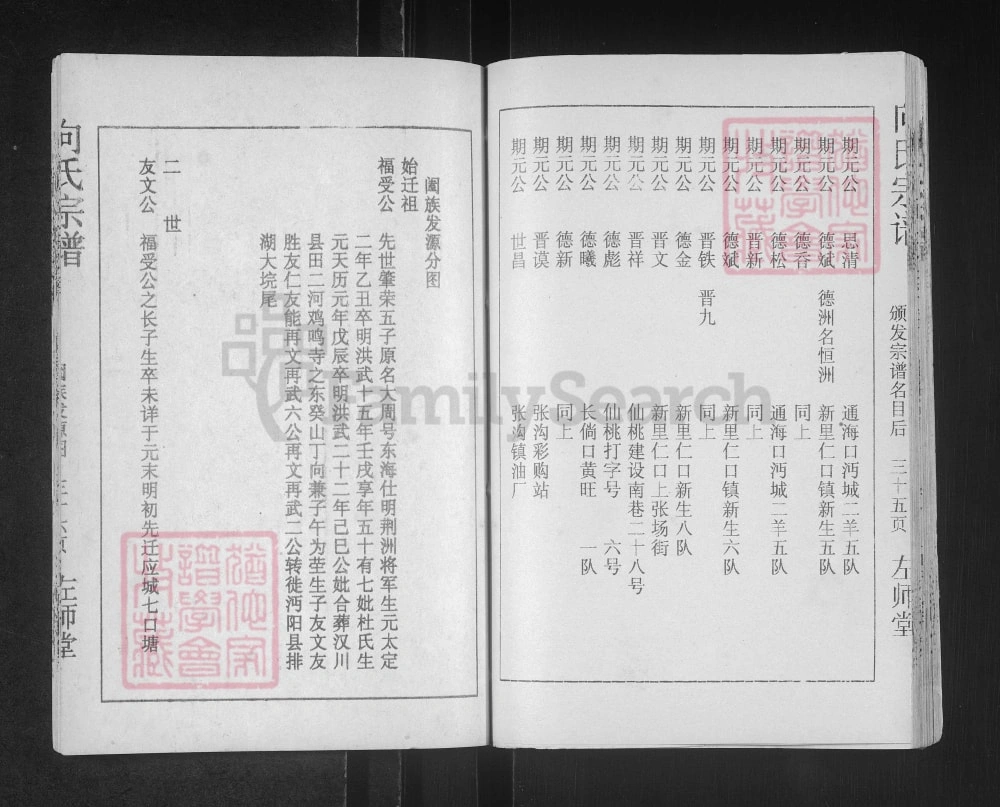 向氏宗谱
颁发宗谱名目后 三十五页 左师堂
期元公 思清 通海口沔城二羊五队
期元公 德斌 德洲名恒洲 新里仁口镇新生五队
期元公 德香 同上
期元公 德松 通海口沔城二羊五队
期元公 晋新 同上
期元公 德斌 新里仁口镇新生六队
期元公 晋铁 晋九 同上
期元公 德金 新里仁口新生八队
期元公 晋文 新里仁口上张场街
期元公 晋祥 仙桃建设南巷二十八号
期元公 德彪 仙桃打字号 六号
期元公 德曦 长倘口黄旺 一队
期元公 德新 同上
期元公 晋谟 张沟彩购站
期元公 世昌 张沟镇油厂
阖族发源分图
始迁祖
福受公 先世肇荣五子原名大周号东海仕明荆洲将军生元太定
二年乙丑卒明洪武十五年壬戌享年五十有七妣杜氏生
元天历元年戊辰卒明洪武二十二年己巳公妣合葬汉川
县田二河鸡鸣寺之东癸山丁向兼子午为茔生子友文友
胜友仁友能再文再武六公再文再武二公转徙沔阳县排
湖大垸尾
二 世
友文公 福受公之长子生卒未详于元末明初先迁应城七口塘
向氏宗谱
左师堂